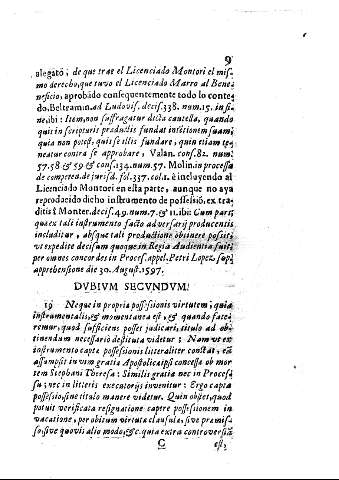 9
alegatō; de que trae el Licenciado Montori el mis-
mo derecho, que tuvo el Licenciado Marro al Bene-
neficio, aprobādo consequentemente todo lo conte-
do, Beltramin. ad Ludovis. decis. 338. num. 15. in fi-
ne, ibi: Item, non suffragatur dicta cautella, quando
quis in scripturis productis fundat intētionem suam;
quia non potest, quis se illis fundare, quin etiam te-
neatur contra se approbare, Valan. cons. 82. num.
57. 58 & 59 & cons. 134. num. 57. Molin. in processu
de competen. de jurisd. fol. 337. col. 2. è incluyendo al
Licenciado Montori en esta parte, aunque no aya
reproducido dicho instrumento de possessiō, ex tra-
ditis à Monter. decis. 49. num. 7. & 11. ibi: Cum pari-
que ex tali instrumento facto adversarij producentis
includitur, absque tali productione obtinere possit;
vt expedite decisum quoque in Regia Audientia fuit,
per omnes concordes in Process. appel. Petri Lopez, sup.
apprehensione die 30. August. 1597.
DUBIUM SECUNDUM.
19 Neque in propria possessionis virtutem, quia
instrumentalis, & momentanea est, & quando fate-
remur, quod sufficiens posset judicari, titulo ad ob-
tinendum necessario destituta videtur: Nam vt ex
instrumento captæ possessionis litteraliter constat, est
assumpsit in vim gratiæ Apostolicæ ipsi concessæ ob mor-
tem Stephani Theresa: Similis gratia nec in Proces-
su; nec in litteris executorijs invenitur: Ergo capta
possessio, sine titulo manere videtur. Quin obstet, quod
potuit verificata resignatione capere possessionem in
vacatione, per obitum virtute clausulæ, sive præmis-
so, sive quovis alio modo, &c. quia extra controversiā
C est,